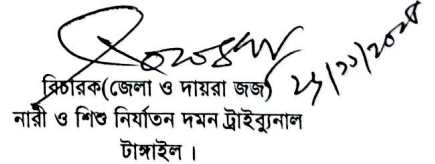 বিচারক(জেলা ও দায়রা জজ)
নারী ও শিশু নির্যাতন দমন ট্রাইব্যুনাল
টাঙ্গাইল ।